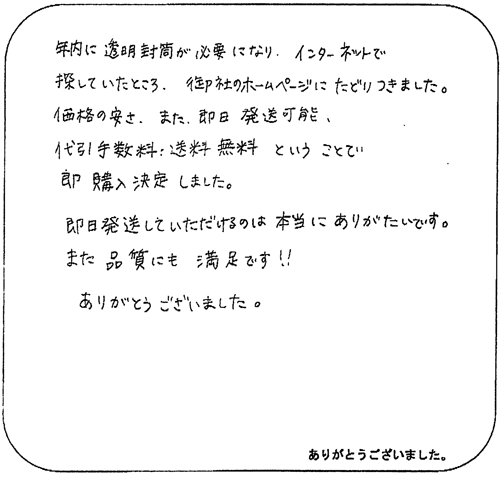 年内に透明封筒が必要になり、インターネットで
探していたところ、御社のホームページにたどりつきました。
価格の安さ、また、即日発送可能、
代引手数料・送料無料ということで
即購入決定しました。
即日発送していただけるのは本当にありがたいです。
また品質にも満足です!!
ありがとうございました。
ありがとうございました。